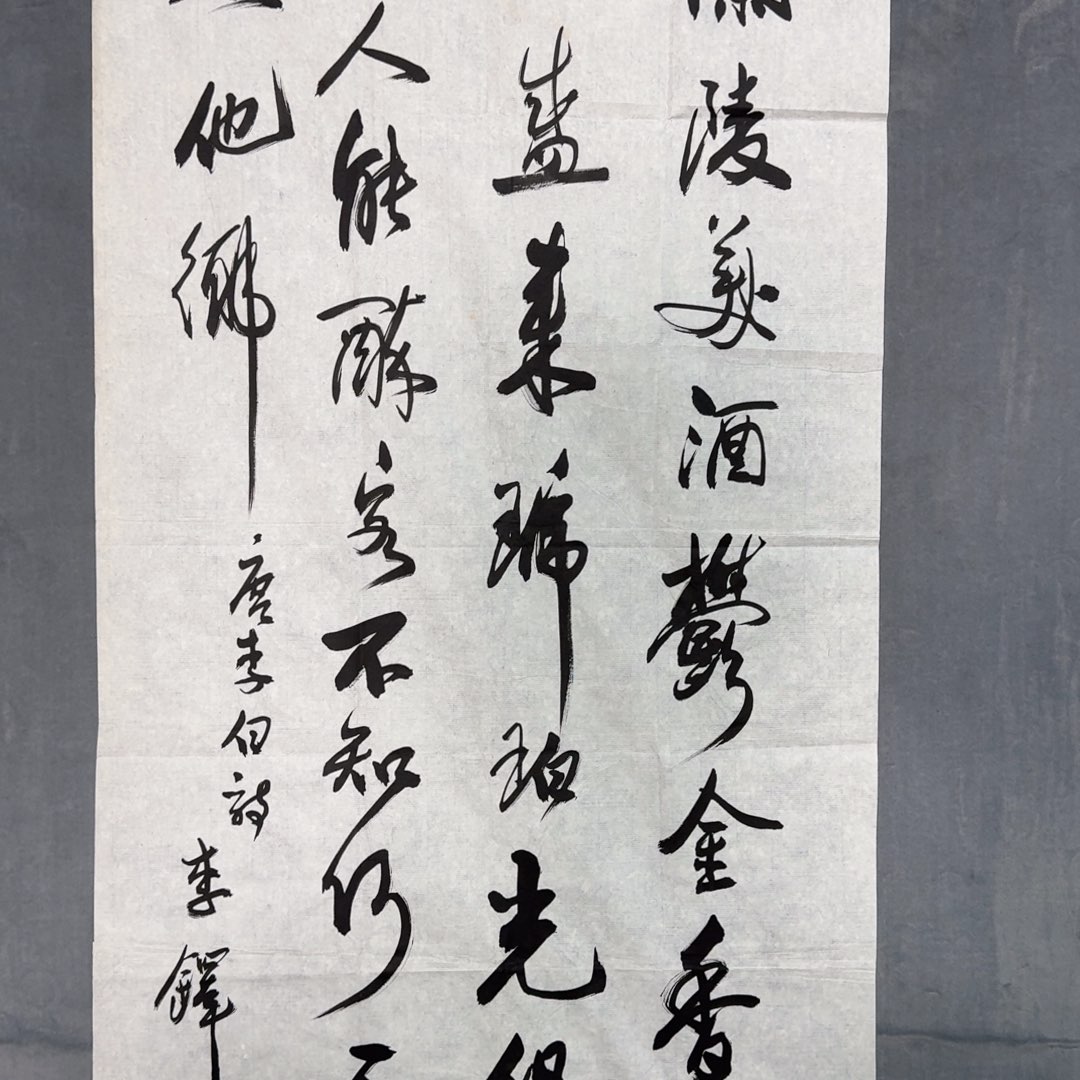 陵美酒鬱金香
盛来琥珀光
人能醉客不知何
他鄉
唐李白詩
李鐸